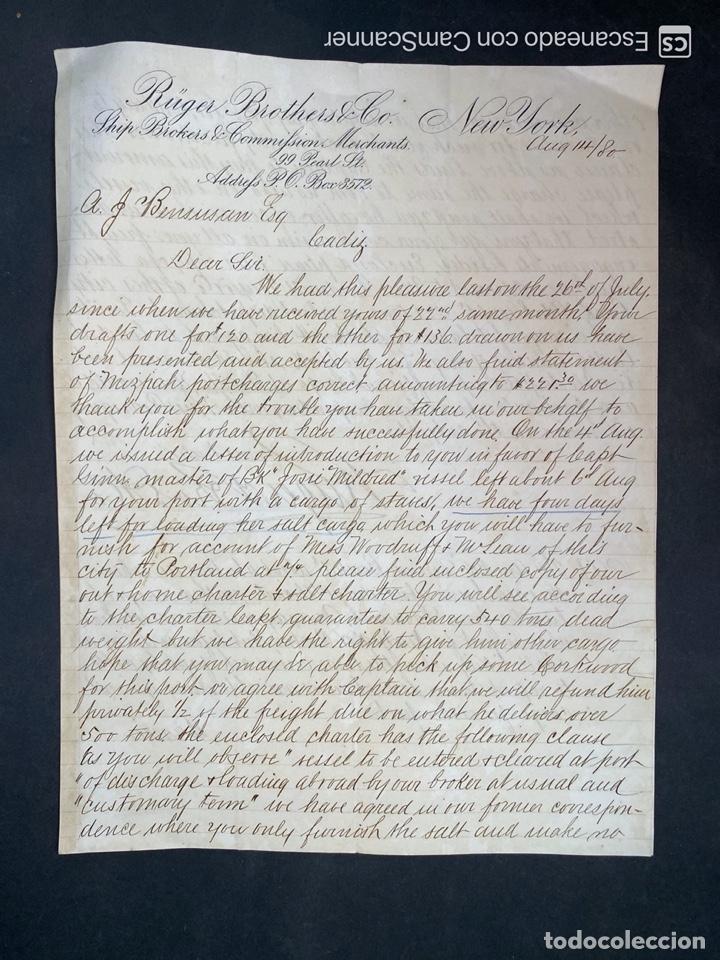 Escaneado con CamScanner
CS
Rüger Brothers & Co.
New York,
Ship Brokers & Commission Merchants.
Aug 14/80
99 Pearl St.
Address P.O. Box 3572.
A. J Bensusan Esq
Cadiz
Dear Sir.
We had this pleasure last on the 26th of July.
since when we have received yours of 22nd same month. Your
drafts one for $120 and the other for $136 drawn on us have
been presented and accepted by us. We also find statement
of Mezpah portcharges correct amounting to $221.30 we
thank you for the trouble you have taken in our behalf to
accomplish what you have successfully done. On the 4th Aug
we issued a letter of introduction to you in favor of Capt
Ginn master of Bk "Josie Mildred" vessel left about 6th Aug
for your port with a cargo of staves, we have four days
left for loading her salt cargo which you will have to fur-
nish for account of Mess Woodruff & McLean of this
city to Portland at please find enclosed copy of our
out & home charter & salt charter. You will see according
to the charter Capt. guarantees to carry 540 tons dead
weight but we have the right to give him other cargo
hope that you may be able to pick up some Corkwood
for this port or agree with Captain that we will refund him
privately 1/2 of the freight due on what he delivers over
500 tons the enclosed charter has the following clause
as you will observe "vessel to be entered & cleared at port
"of discharge & loading abroad by our broker at usual and
"customary term" we have agreed in our former correspon-
dence where you only furnish the salt and make no
todocoleccion